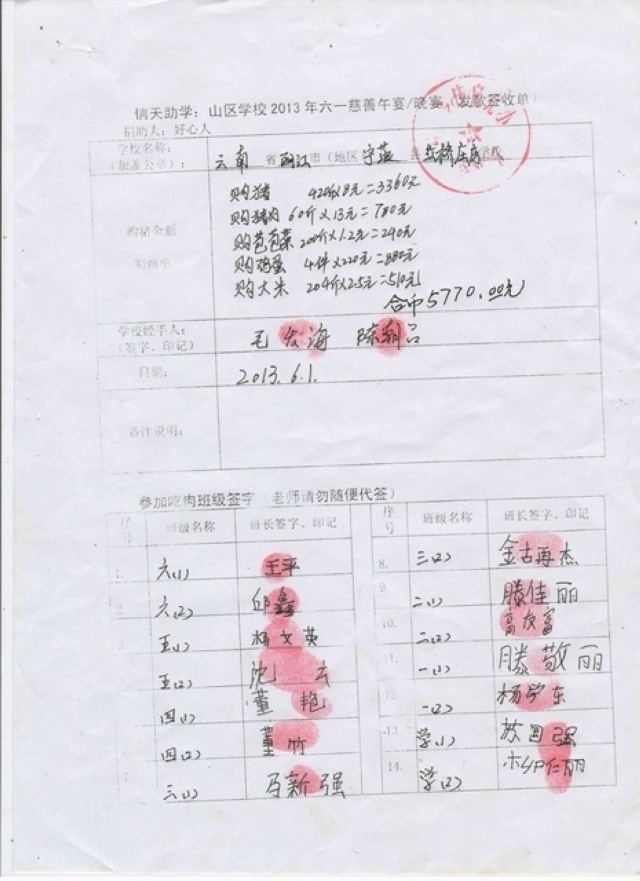 信天助学：山区学校2013年六一慈善午宴/晚宴 发款签收单）
捐助人：好心人
学校名称：
（加盖公章）：
云南省丽江市（地区 宁蒗 县 红桥 学校
购猪金额
明细单
购猪 420斤×8元=3360元
购猪肉 60斤×13元=780元
购苞苞菜 200斤×1.2元=240元
购鸡蛋 4件×220元=880元
购大米 204斤×2.5元=510元
合币5770.00元
学校经手人：
（签字、印记）
毛发海 陈利品
日期：
2013.6.1.
备注说明：
参加吃肉班级签字（老师请勿随便代签）
序号 班级名称 班长签字、印记 序号 班级名称 班长签字、印记
1. 六(1) 王平 8. 三(2) 金古再杰
2. 六(2) 邱鑫 9 二(1) 滕佳丽
3. 五(1) 杨文英 10. 二(2) 高友富
五(2) 沈云 一(1) 滕敬丽
四(1) 董艳 12 一(2) 杨学东
四(2) 董竹 13 学(1) 国强
7 三(1) 马新强 14. 学(2) 丽